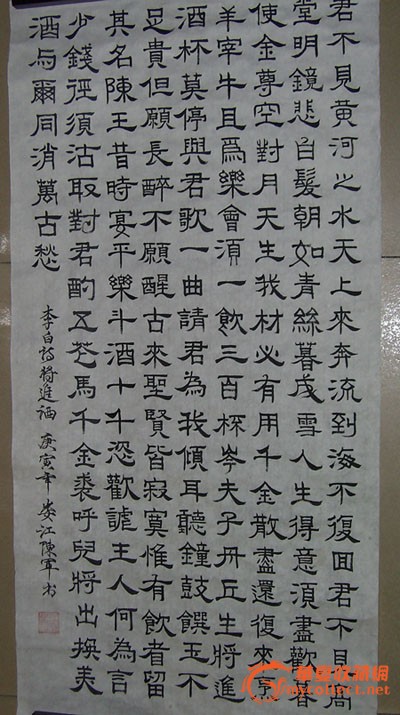 君不見黃河之水天上來奔流到海不復回君不見高
堂明鏡悲白髮朝如青絲暮成雪人生得意須盡歡暮
使金尊空對月天生我材必有用千金散盡還復來亨
羊宰牛且爲樂會須一飲三百杯岑夫子丹丘生將進
酒杯莫停與君歌一曲請君為我傾耳聽鐘鼓饌玉不
足貴但願長醉不願醒古來聖賢皆寂寞惟有飲者留
其名陳王昔時宴平樂斗酒十千恣歡謔主人何為言
少錢徑須沽取對君酌五花馬千金裘呼兒將出換美
酒与爾同消萬古愁
李白詩將進酒 庚寅年 婁江陳軍书
华夏收藏网
mycollect.net